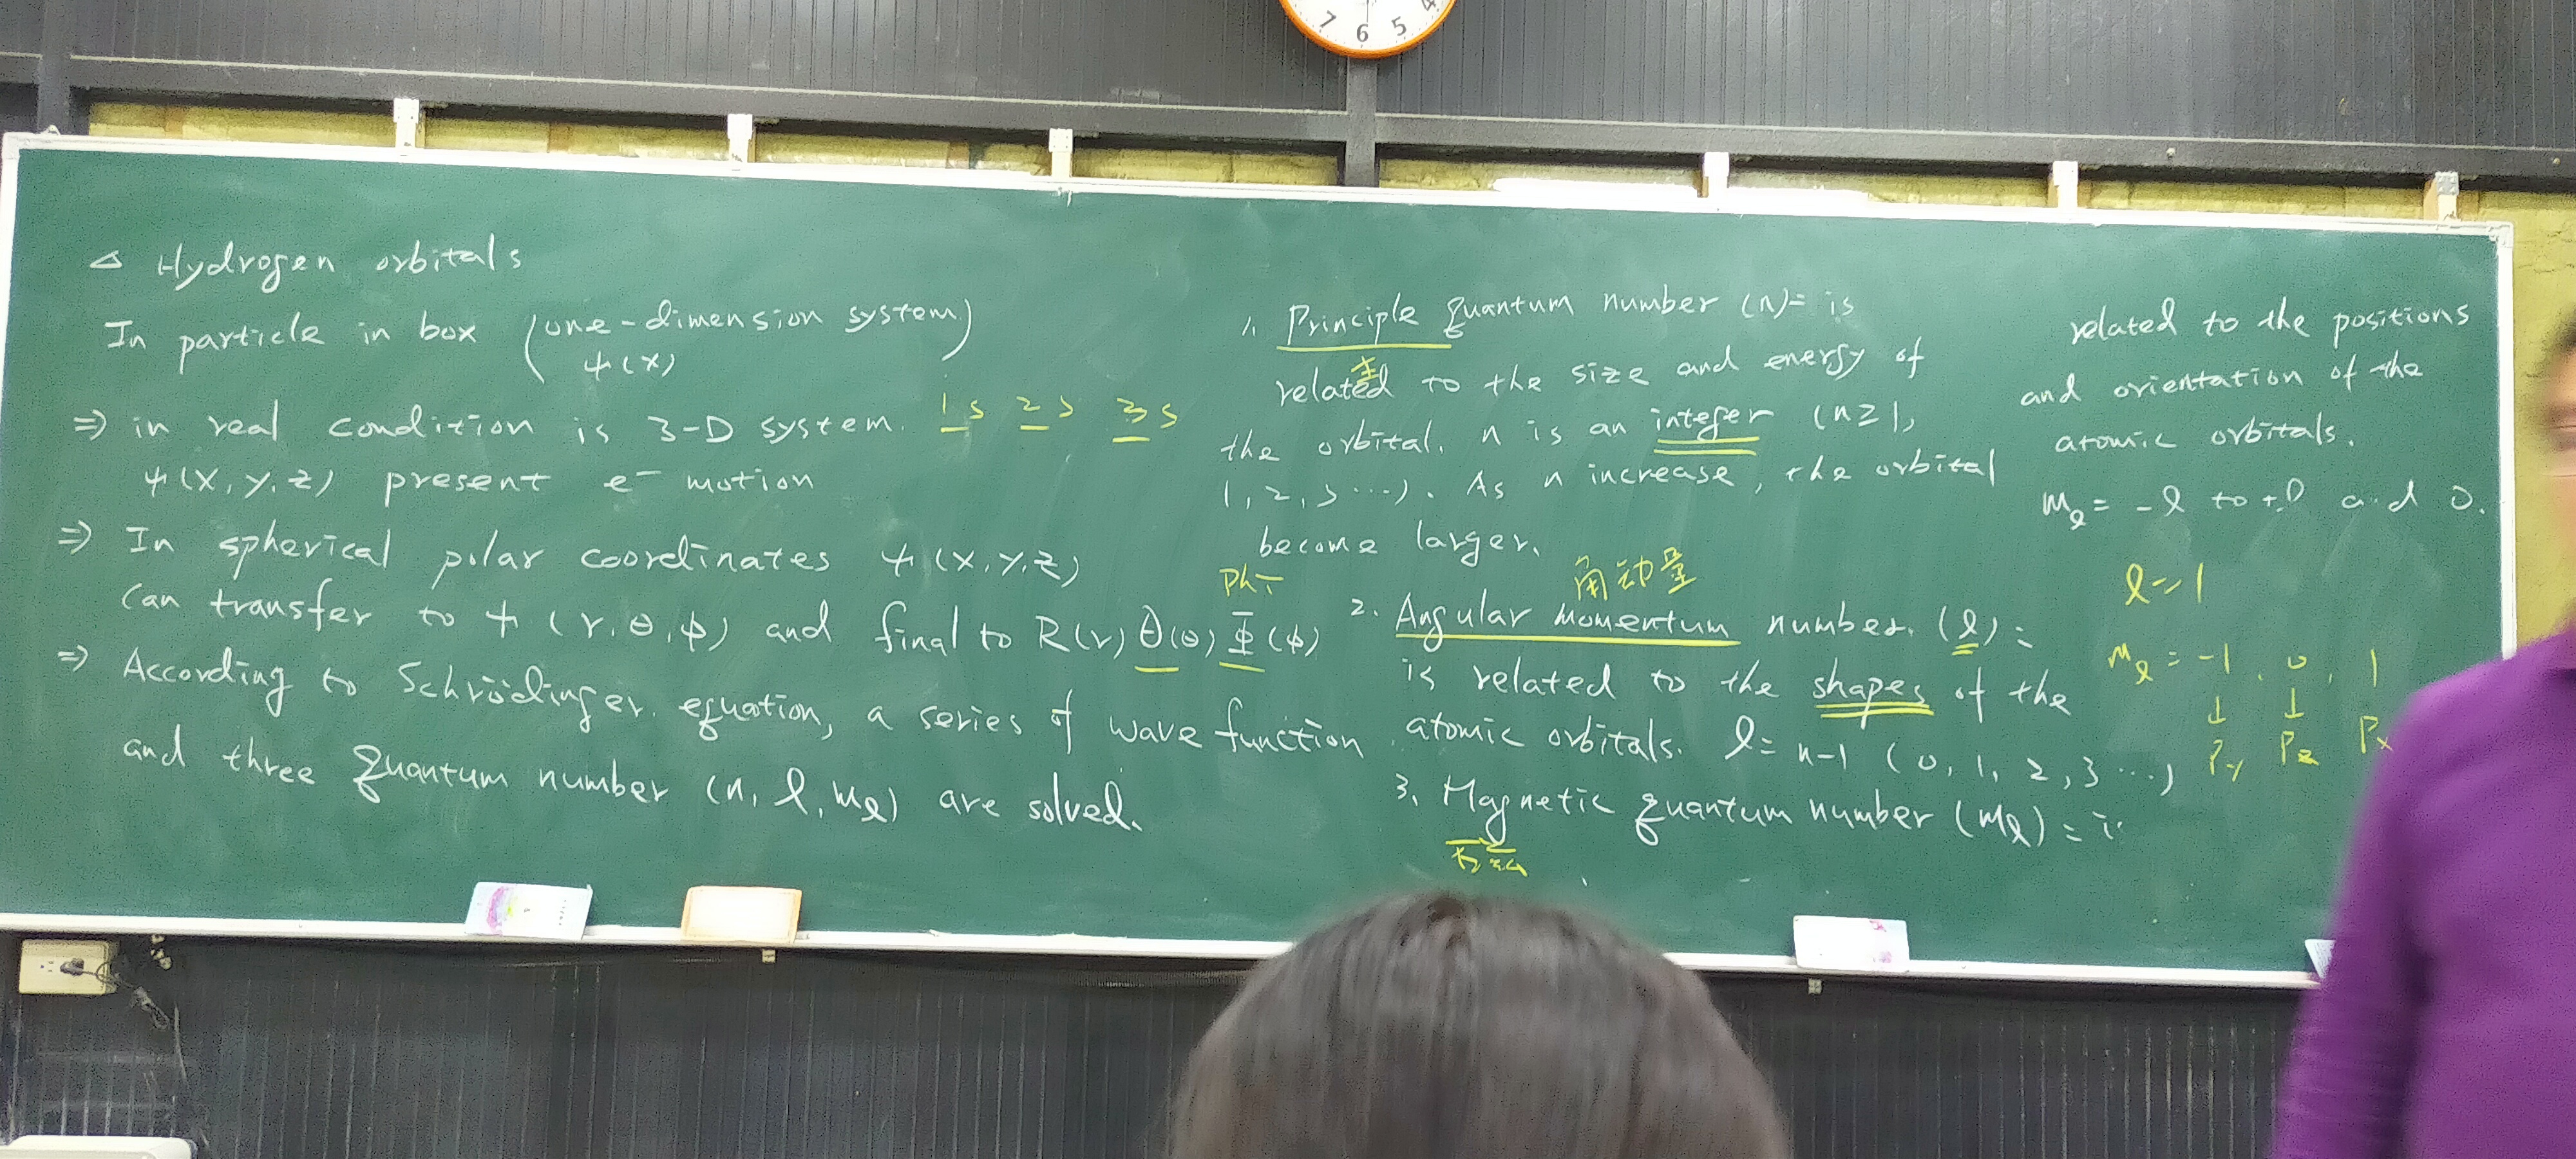 △ Hydrogen orbitals
In particle in box (one-dimension system)
ψ(x)
⇒ in real condition is 3-D system. 1s 2s 3s
ψ(x,y,z) present e⁻ motion
⇒ In spherical polar coordinates ψ(x,y,z)
Phi
can transfer to ψ(r,θ,φ) and final to R(r)Θ(θ)Φ(φ)
⇒ According to Schrödinger equation, a series of wave function
and three quantum number (n, l, mℓ) are solved.
1. Principle quantum number (n)= is
主
related to the size and energy of
the orbital. n is an integer (n≥1,
1, 2, 3 ...). As n increase, the orbital
become larger.
角动量
2. Angular momentum number. (l) =
is related to the shapes of the
atomic orbitals. l= n-1 (0, 1, 2, 3 ...)
3. Magnetic quantum number (mℓ) =
related to the positions
and orientation of the
atomic orbitals.
mℓ = -l to +l and 0.
l=1
mℓ = -1, 0, 1
↓ ↓
Py Pz Px
7 6 5 4